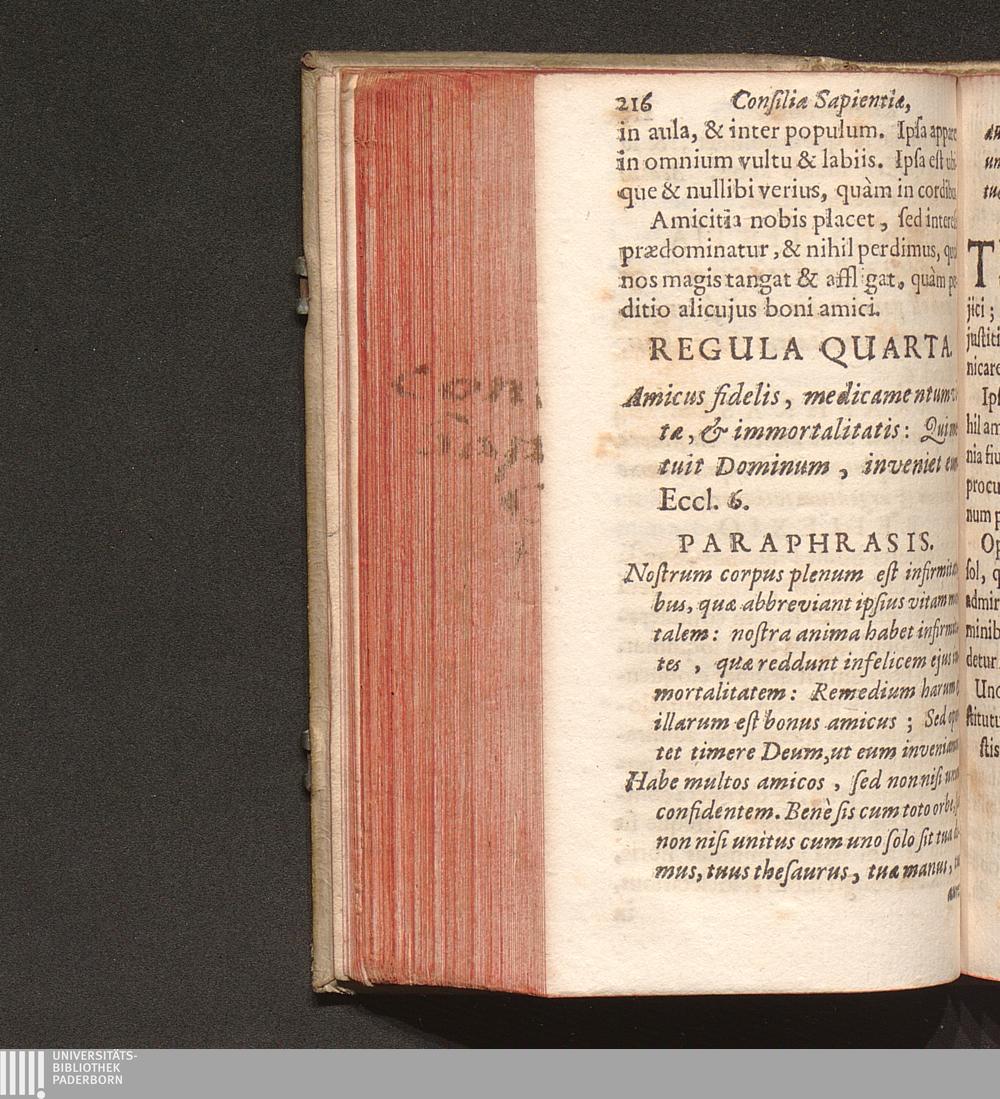 216 Consiliæ Sapientiæ,
in aula, & inter populum. Ipſa appare
in omnium vultu & labiis. Ipſa eſt ubi
que & nullibi verius, quàm in cordibu
Amicitia nobis placet, ſed intereſ
prædominatur, & nihil perdimus, quo
nos magis tangat & affl gat, quàm pe
ditio alicujus boni amici.
REGULA QUARTA.
Amicus fidelis, medicamentum v
tæ, & immortalitatis: Qui me
tuit Dominum, inveniet eum
Eccl. 6.
PARAPHRASIS.
Noſtrum corpus plenum eſt infirmita
bus, quæ abbreviant ipſius vitam mo
talem: noſtra anima habet infirmita
tes, quæ reddunt infelicem ejus
mortalitatem: Remedium harum
illarum eſt bonus amicus; Sed opor
tet timere Deum, ut eum inveniam
Habe multos amicos, ſed non niſi unum
confidentem. Benè ſis cum toto orbe,
non niſi unitus cum uno ſolo ſit tua do
mus, tuus theſaurus, tuæ manus,
T
jici;
juſtiti
nicare
Ipſ
hil am
nia fiu
procu
num p
Op
ſol, q
admir
minib
detur
Uno
ſtitutu
ſtis
UNIVERSITÄTS-
BIBLIOTHEK
PADERBORN